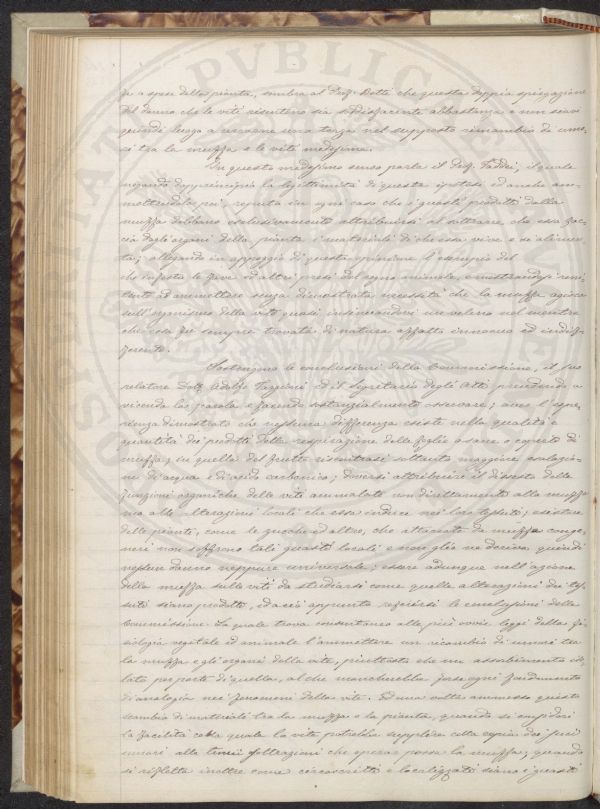 fa a spese della pianta, sembra al Prof. Botti che questa doppia spiegazione
del danno che le viti risentono sia soddisfacente abbastanza e non siavi
quindi luogo a cercarne una terza nel supposto ricambio di umo-
si tra la muffa e le viti medesime.
In questo medesimo senso parla il Prof. Taddei, il quale
negando dapprincipio la legittimità di questa ipotesi ed anche am-
mettendola poi, reputa in ogni caso che i guasti prodotti dalla
muffa debbano esclusivamente attribuirsi al sottrarre che essa fac-
cia dagli organi della pianta i materiali di che essa vive e si alimen-
ta; allegando in appoggio di questa opinione l'esempio del
che infesta le ed altri presi dal regno animale, e mostrandosi reni-
tente ad ammettere senza dimostrata necessità che la muffa agisca
sull'organismo della vite quasi insinuandovi un veleno nel mentre
che essa fu sempre trovata di natura affatto innocua ed indif-
ferente.
Sostengono le conclusioni della Commissione, il suo
relatore Dott. Adolfo Targioni ed il Segretario degli Atti prendendo a
vicenda la parola e facendo sostanzialmente osservare; aver l'espe-
rienza dimostrato che nessuna differenza esiste nella qualità e
quantità dei prodotti della respirazione delle foglie o sane o coperte di
muffa; su quella del frutto riscontrasi soltanto maggiore esalazio-
ne di acqua e di acido carbonico; doversi attribuire il dissesto delle
funzioni organiche delle viti ammalate non direttamente alla muffa
ma alle alterazioni locali che essa induce nei loro tessuti; esistere
delle piante, come le zucche ed altre, che attaccate da muffe conge-
neri non soffrono tali guasti locali e non glie ne deriva quindi
nessun danno neppure universale; essere adunque nell'azione
della muffa sulla vite da studiarsi come quelle alterazioni dei tes-
suti siano prodotte, ed a ciò appunto referirsi le conclusioni della
Commissione. La quale trova consentaneo alle più ovvie leggi della fi-
siologia vegetale ed animale l'ammettere un ricambio di umori tra
la muffa e gli organi della vite, piuttosto che un assorbimento iso-
lato per parte di quella, al che mancherebbe forse ogni fondamento
di analogia nei fenomeni della vita. Ed una volta ammesso questo
scambio di materiali tra la muffa e la pianta, quando si
la facilità colla quale la vite potrebbe supplire colla copia dei suoi
umori alle tenui sottrazioni che operar possa la muffa; quando
si rifletta inoltre come circoscritti e localizzati siano i guasti